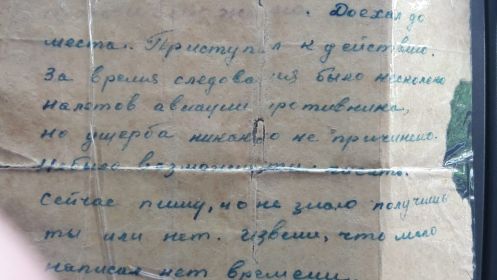 Доехал до
места. Приступил к действию.
За время следования было несколько
налетов авиации противника,
но ущерба никакого не причинено.
Не было возможности писать.
Сейчас пишу, но не знаю получишь
ты или нет. Извени, что мало
написал нет времени.